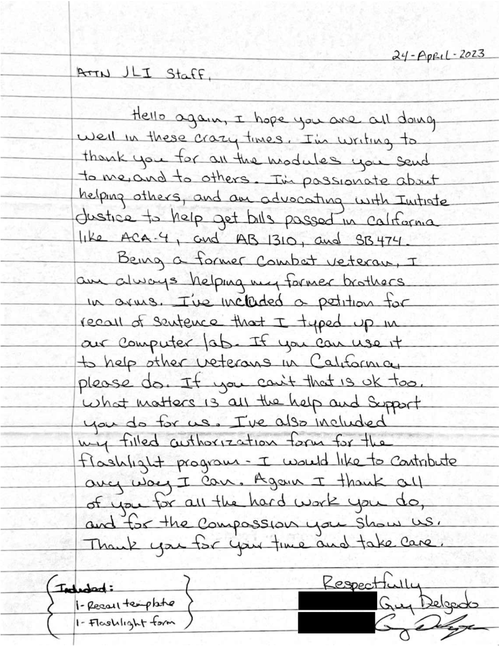 24-April-2023
ATTN JLI Staff,
Hello again, I hope you are all doing
well in these crazy times. I'm writing to
thank you for all the modules you send
to me, and to others. I'm passionate about
helping others, and am advocating with Initiate
Justice to help get bills passed in California
like ACA-4, and AB 1310, and SB 474.
Being a former combat veteran, I
am always helping my former brothers
in arms. I've included a petition for
recall of sentence that I typed up in
our computer lab. If you can use it
to help other veterans in California,
please do. If you can't that is ok too.
What matters is all the help and support
you do for us. I've also included
my filled authorization form for the
flashlight program - I would like to contribute
any way I can. Again I thank all
of you for all the hard work you do,
and for the compassion you show us.
Thank you for your time and take care.
Respectfully
Guy Delgado
Included:
1- Recall template
1- Flashlight form